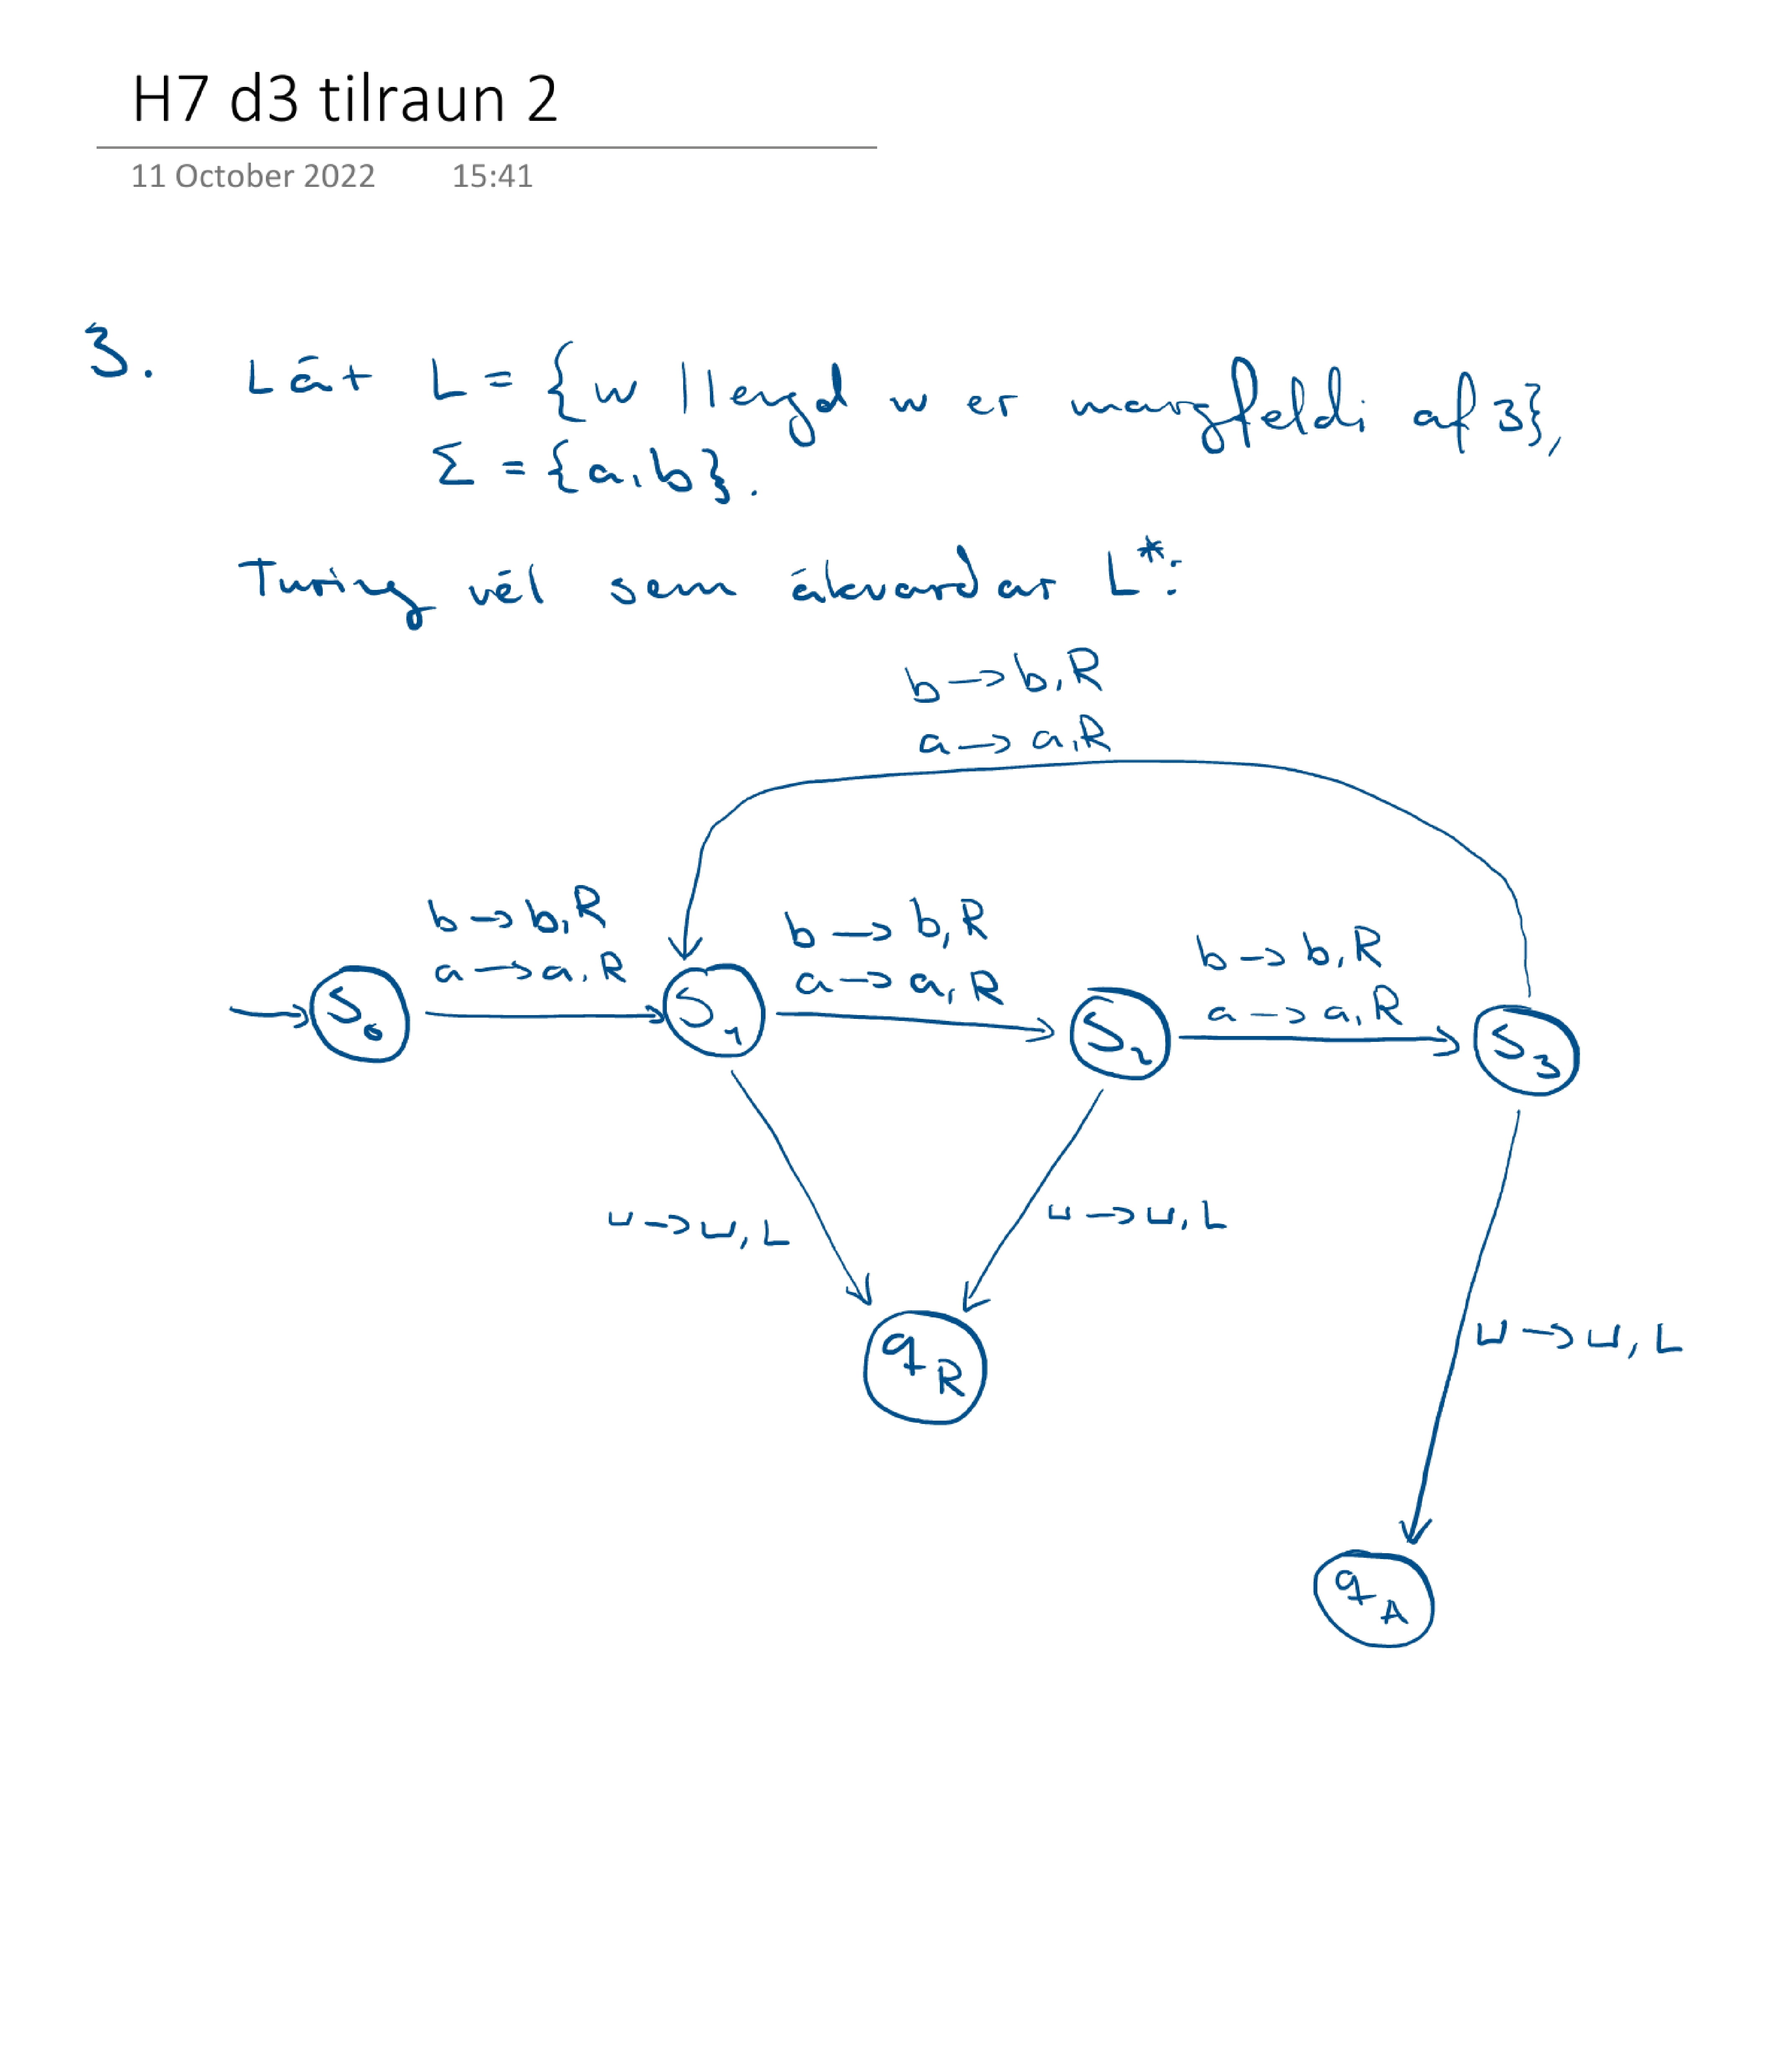 H7 d3 tilraun 2
11 October 2022 15:41
3. Lát L = {w | lengd w er margfeldi af 3},
Σ = {a,b}.
Turing vél sem ákvardar L*:
b → b,R
a → a,R
b → b,R
a → a,R
b → b,R
a → a,R
b → b,R
a → a,R
S₀
S₁
S₂
S₃
⊔ → ⊔, L
⊔ → ⊔, L
⊔ → ⊔, L
q_R
q_A